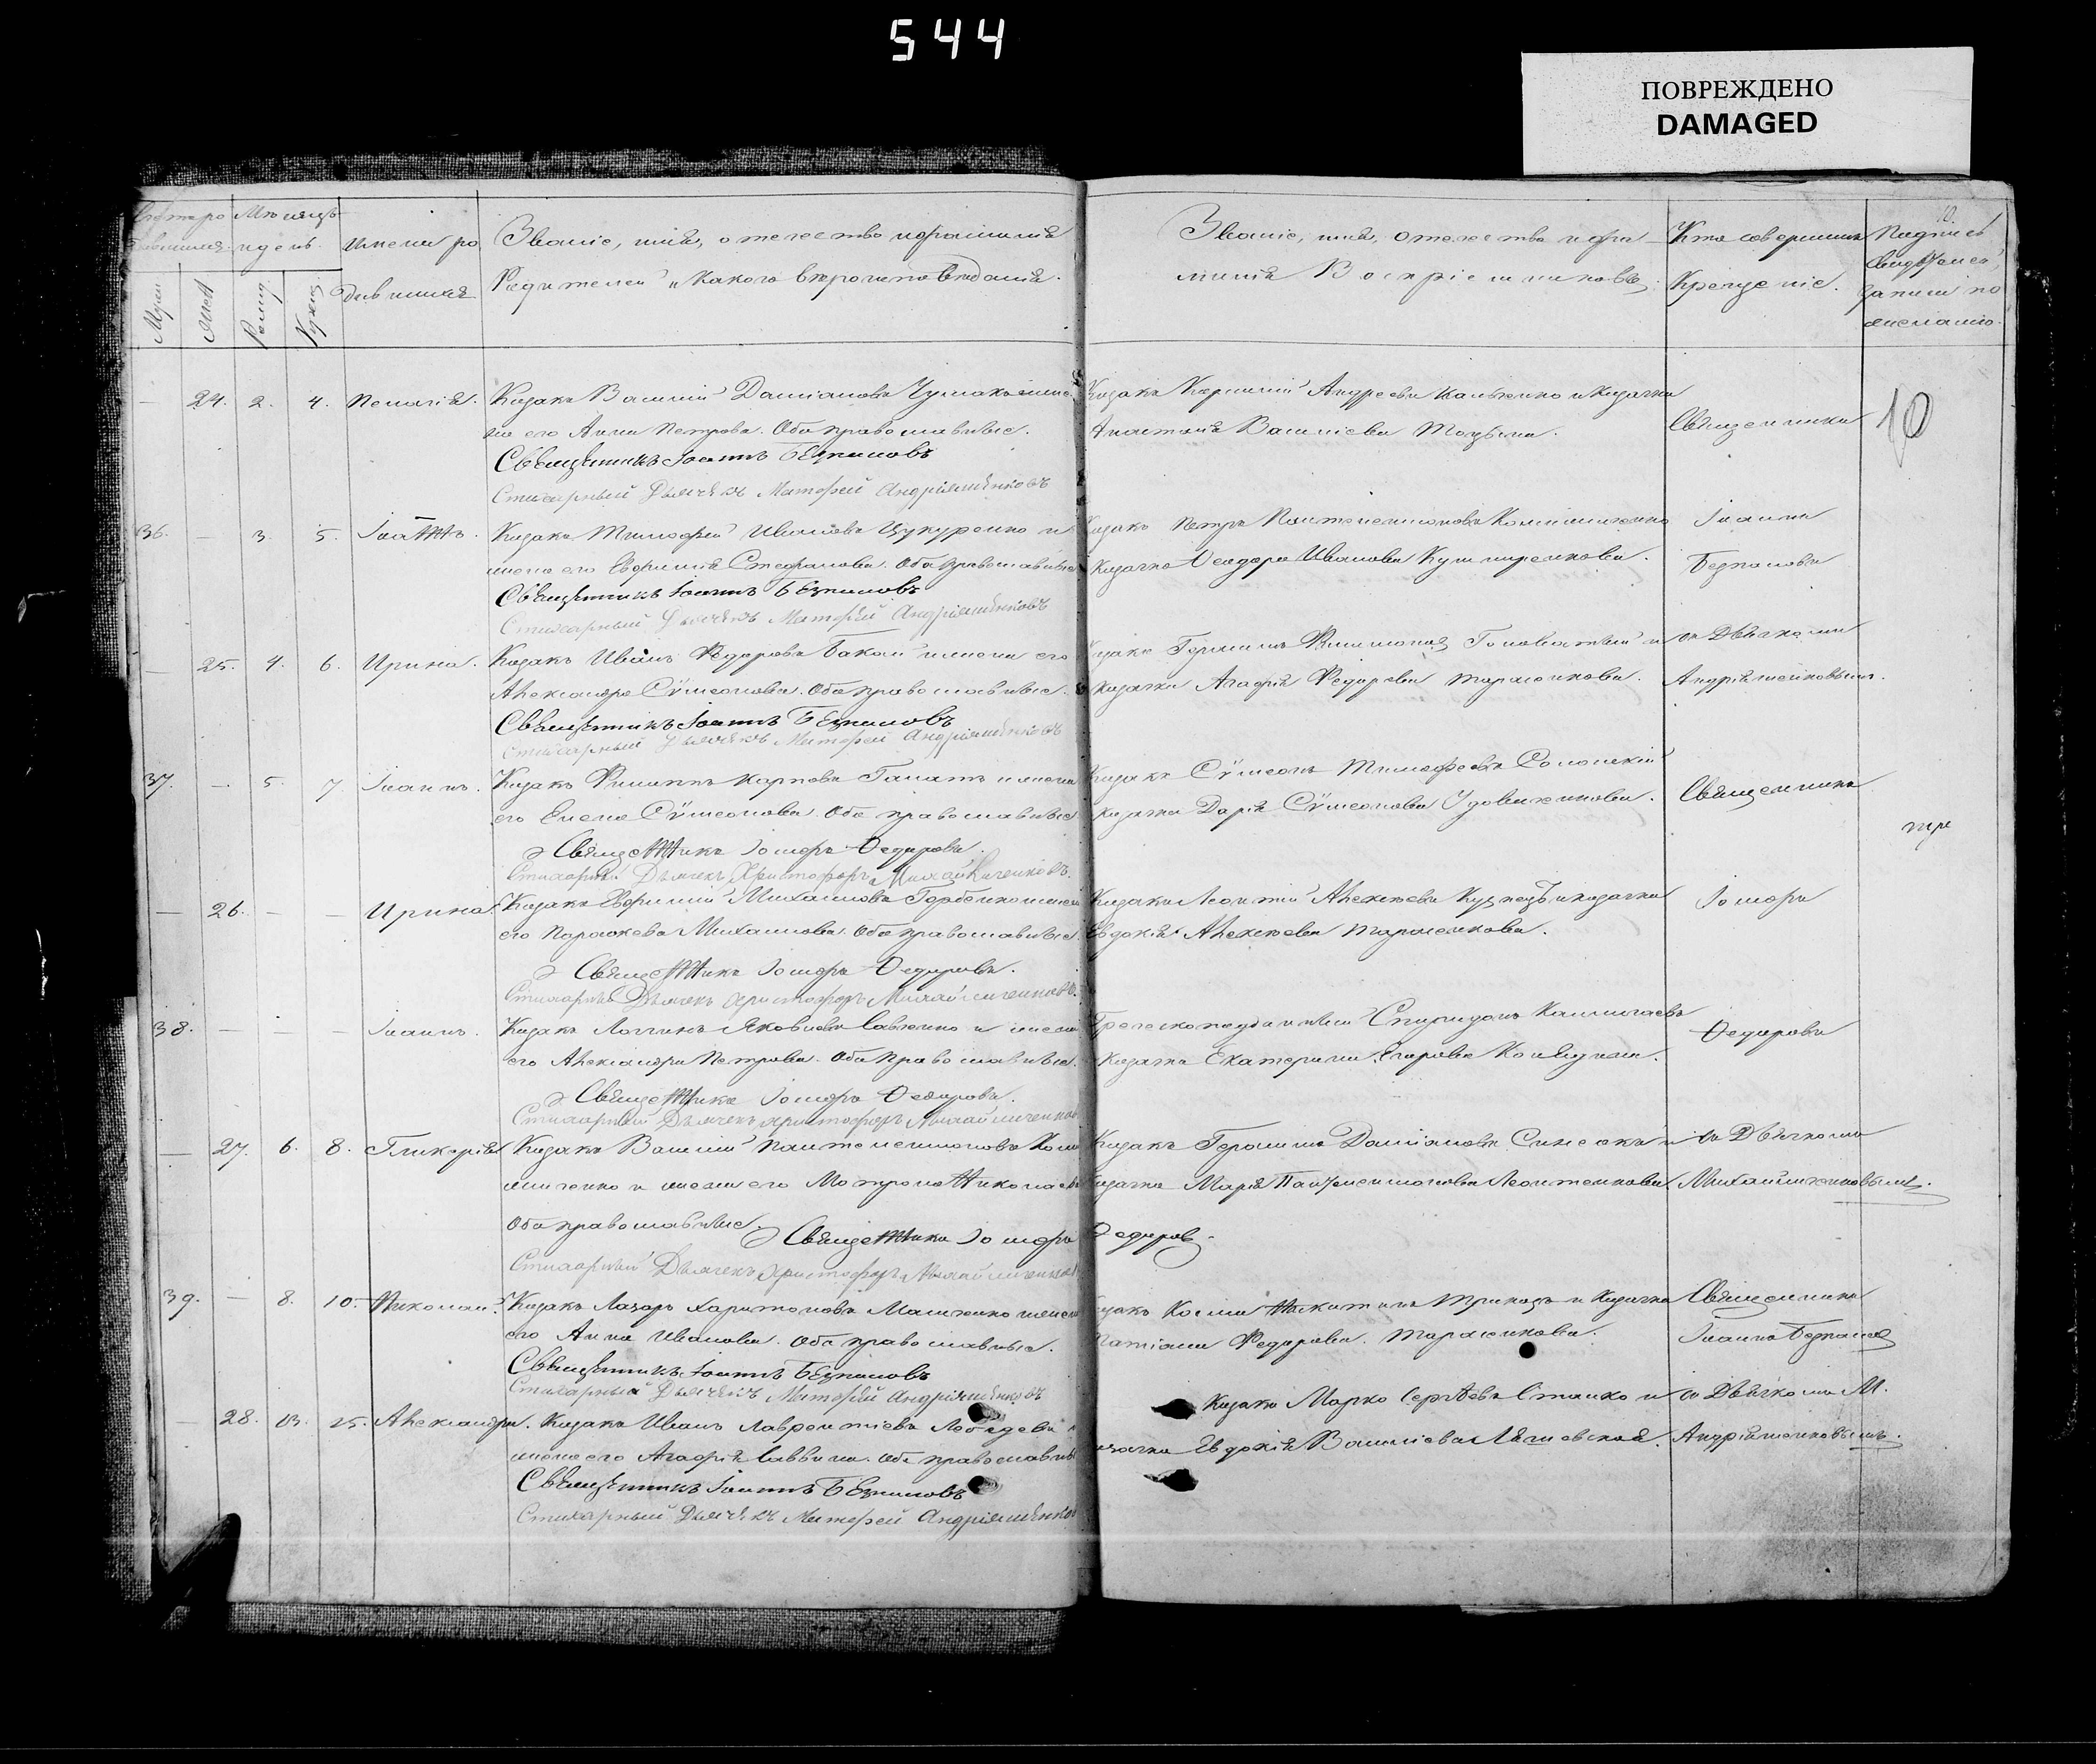 544
ПОВРЕЖДЕНО
DAMAGED
10.
Имена ро
дившихся
Званіе, имя, отечество и фамилія
Родителей и какого вѣроисповѣданія.
Званіе, имя, отечество и фа
милія Воспріемниковъ.
Кто совершилъ
Крещеніе.
Подпись
свидѣтелей
записи по
желанію.
24. 2. 4. Пелагія.
Козакъ Василій Даміановъ Чумакъ и жена
его Анна Петрова. Оба православные.
Священникъ Іоаннъ Безпаловъ
Стихарный Дьячекъ Матофей Андріяшенковъ
Анастасія Василіева
Священникъ
10
36. 3. 5. Іоаннъ.
Козакъ Тимофей Ивановъ Цукуренко и
жена его Евфимія Стефанова. Оба православные
Священникъ Іоаннъ Безпаловъ
Стихарный Дьячекъ Матофей Андріяшенковъ
Козакъ Петръ Пантелеимоновъ Коломійченко
Козачка Ѳеодора Иванова Кушниренкова.
Іоаннъ
Безпаловъ
25. 4. 6. Ирина.
Козакъ Иванъ Федоровъ Бакай и жена его
Александра Сѵмеонова. Оба православные.
Священникъ Іоаннъ Безпаловъ
Стихарный Дьячекъ Матофей Андріяшенковъ
Козакъ Герасимъ Филимоновъ Головатый и
козачка Агафія Федорова Тарасенкова.
съ Дьячкомъ
Андріяшенковымъ.
37. 5. 7 Іоаннъ.
Козакъ Филиппъ Карповъ Галатъ и жена
его Елена Сѵмеонова. Оба православные
Священникъ Іосифъ Ѳедоровъ.
Стихарный Дьячекъ Христофоръ Михайличенковъ.
Козакъ Сѵмеонъ Тимофеевъ Солонскій
козачка Дарія Сѵмеонова Удовиченкова.
Священникъ
три
26. Ирина.
Козакъ Евфимій Михаиловъ Горбенко и жена
его Параскева Михаилова. Оба православные.
Священникъ Іосифъ Ѳедоровъ.
Стихарный Дьячекъ Христофоръ Михайличенковъ.
Козакъ Леонтій Алексѣевъ Кузнецъ и козачка
Евдокія Алексѣева Тарасенкова.
Іосифъ
38. Іоаннъ.
Козакъ Логгинъ Яковлевъ Савченко и жена
его Александра Петрова. Оба православные.
Священникъ Іосифъ Ѳедоровъ.
Стихарный Дьячекъ Христофоръ Михайличенковъ
Греческоподданный Спиридонъ
Козачка Екатерина Егорова
Ѳедоровъ
27. 6. 8. Гликерія
Козакъ Василій Пантелеимоновъ Коло
мійченко и жена его Матрона Николаева
Оба православные.
Священникъ Іосифъ Ѳедоровъ.
Стихарный Дьячекъ Христофоръ Михайличенковъ
Козакъ Герасимъ Даміановъ Синеокъ и
козачка Марія Пантелеимонова Леонтенкова.
съ Дьячкомъ
Михайличенковымъ.
39. 8. 10. Николай.
Козакъ Лазарь Харитоновъ Мащенко и жена
его Анна Иванова. Оба православные.
Священникъ Іоаннъ Безпаловъ
Стихарный Дьячекъ Матофей Андріяшенковъ
Козакъ Косма Никитинъ и Козачка
Татіана Федорова Тарасенкова.
Священникъ
Іоаннъ Безпаловъ
28. 25. Александра.
Козакъ Иванъ Лаврентіевъ Лебедевъ и
жена его Агафія Саввина. Оба православные
Священникъ Іоаннъ Безпаловъ
Стихарный Дьячекъ Матофей Андріяшенковъ
Козакъ Марко Сергѣевъ Сташко и
козачка Евдокія Василіева
съ Дьячкомъ М.
Андріяшенковымъ.